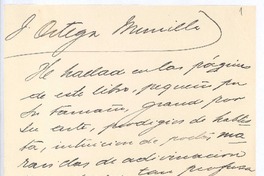 1
J. Ortega Munilla
He hallado en las páginas
de este libro, pequeño por
su tamaño, grande por
su arte, prodigios de habili
intuición de poeta, ma
de adivinación
tan profun